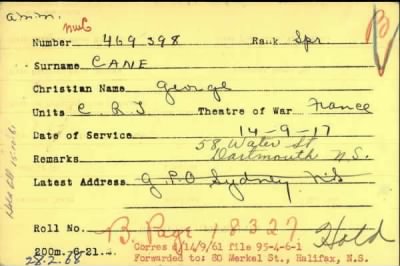 a.m.m.
nwc
B
Number 469398 Rank Spr
Surname CANE
Christian Name George
Units C.R.T Theatre of War France
Date of Service 14-9-17
58 Water St
Remarks Dartmouth N.S.
Latest Address G.P.O Sydney NS
Roll No. B. Page 18327
200m. 6-21. Hold
Corres d/14/9/61 file 95-4-6-1
28.2.68 Forwarded to: 80 Merkel St., Halifax, N.S.